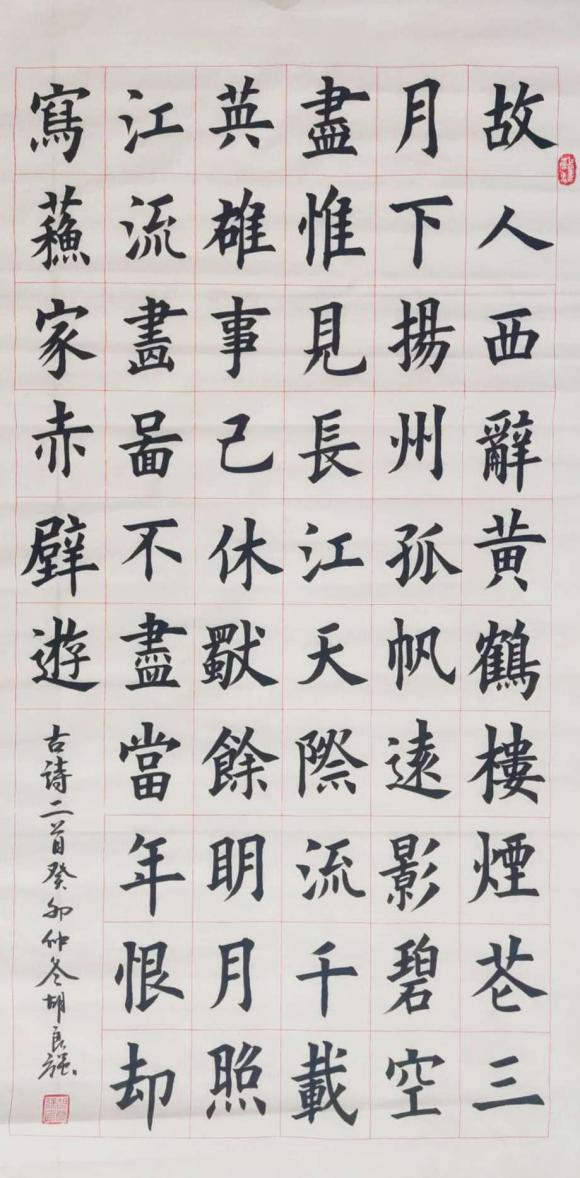 故人西辭黄鶴樓煙花三
月下揚州孤帆遠影碧空
盡惟見長江天際流千載
英雄事已休獨餘明月照
江流畫啚不盡當年恨却
寫蘓家赤壁遊
古詩二首癸卯仲冬胡良强